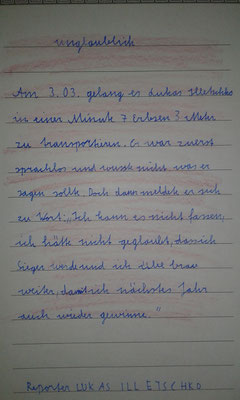 Unglaublich
Am 3.03. gelang es Lukas Illetschko
in einer Minute 7 Erbsen 3 Meter
zu transportieren. Er war zuerst
sprachlos und wusste nicht was er
sagen sollte. Doch dann meldete er sich
zu Wort: „Ich kann es nicht fassen,
ich hätte nicht geglaubt, dass ich
Sieger werde und ich übe brav
weiter, damit ich nächstes Jahr
auch wieder gewinne."
Reporter LUKAS ILLETSCHKO